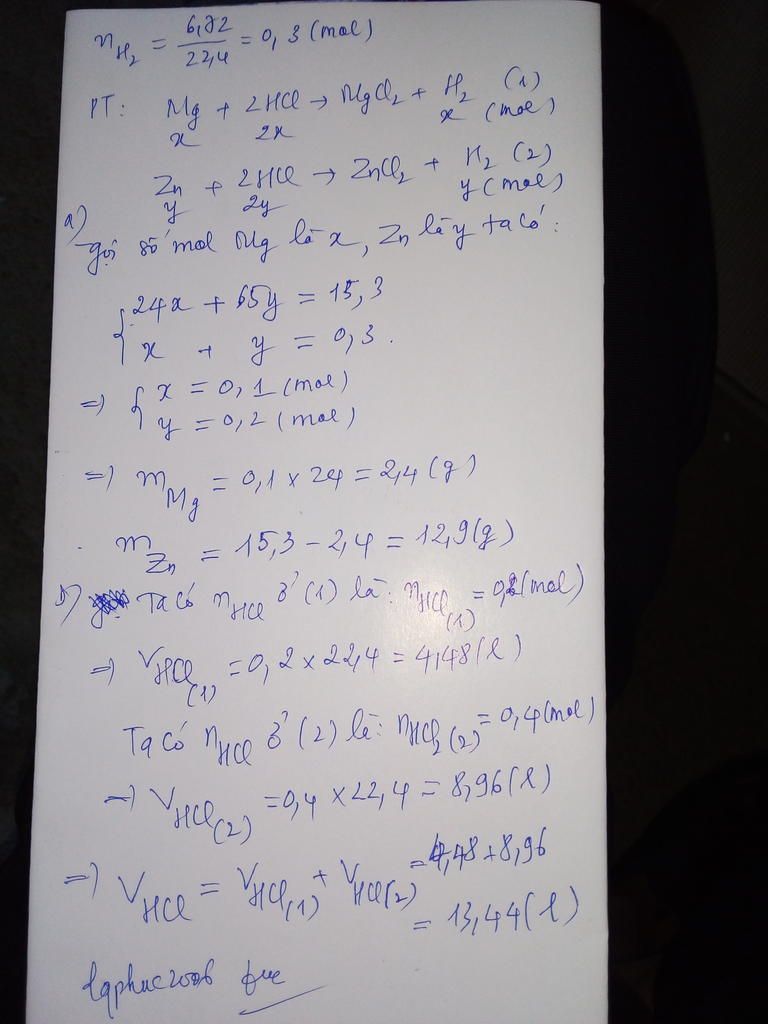 nH₂ = 6,72/22,4 = 0,3 (mol)
PT: Mg + 2HCl → MgCl₂ + H₂ (1)
x 2x x (mol)
Zn + 2HCl → ZnCl₂ + H₂ (2)
y 2y y (mol)
a)
gọi số mol Mg là x, Zn là y ta có:
{ 24x + 65y = 15,3
x + y = 0,3.
=) { x = 0,1 (mol)
y = 0,2 (mol)
=) mMg = 0,1 x 24 = 2,4 (g)
mZn = 15,3 - 2,4 = 12,9 (g)
b) Ta có nHCl ở (1) là: nHCl(1) = 0,2 (mol)
=) VHCl(1) = 0,2 x 22,4 = 4,48 (l)
Ta có nHCl ở (2) là: nHCl₂(2) = 0,4 (mol)
=) VHCl(2) = 0,4 x 22,4 = 8,96 (l)
=) VHCl = VHCl(1) + VHCl(2) = 4,48 + 8,96
= 13,44 (l)